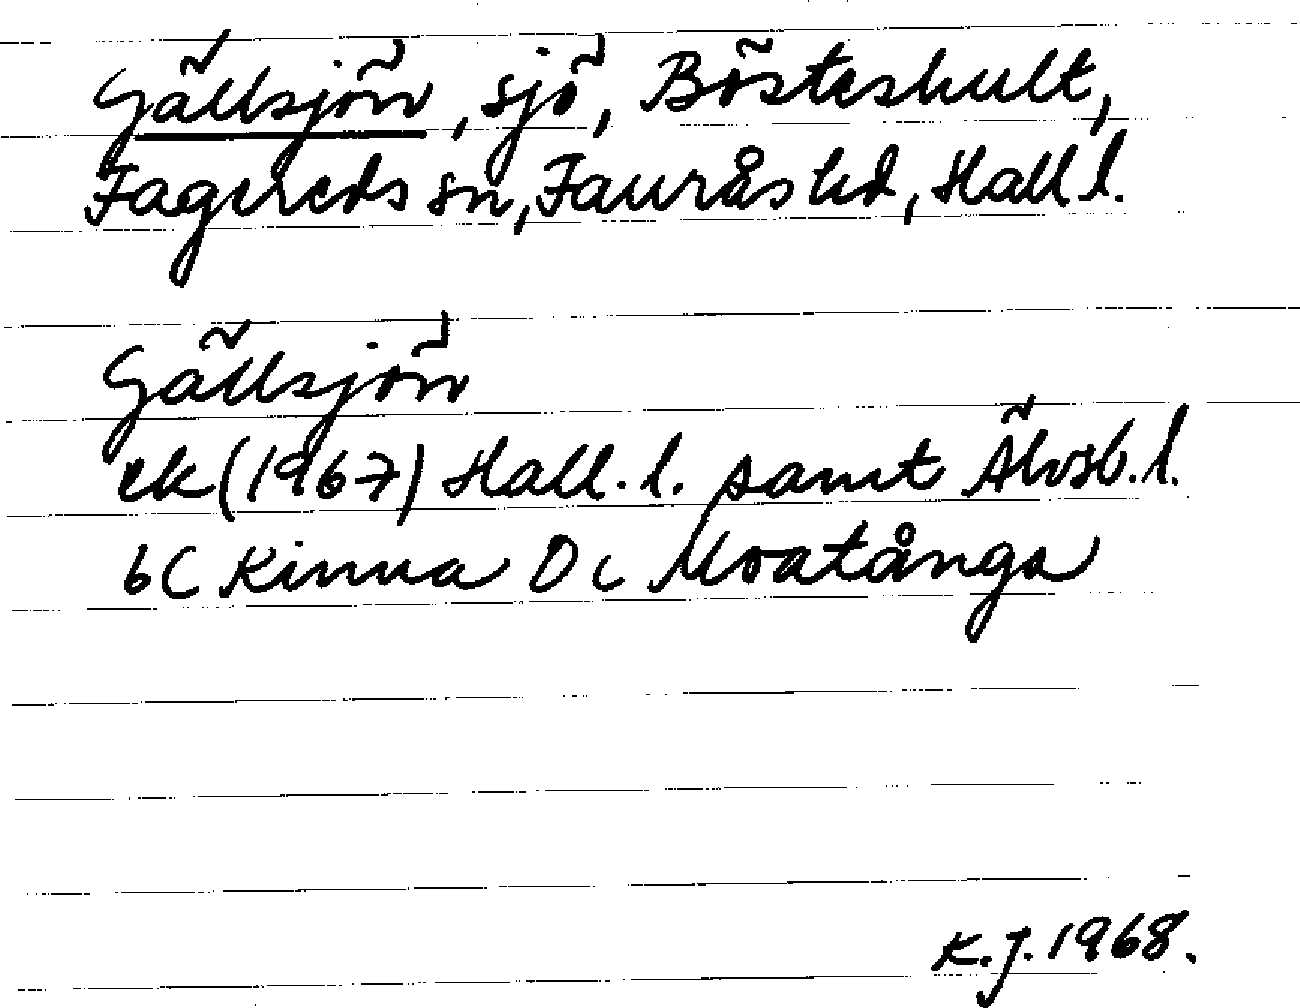 Gällsjön, sjö, Bösteshult,
Fagereds sn, Faurås hd, Hall l.
Gällsjön
ek (1967) Hall. l. samt Älvsb. l.
6C Kinna Oc Moatånga
K.J. 1968.